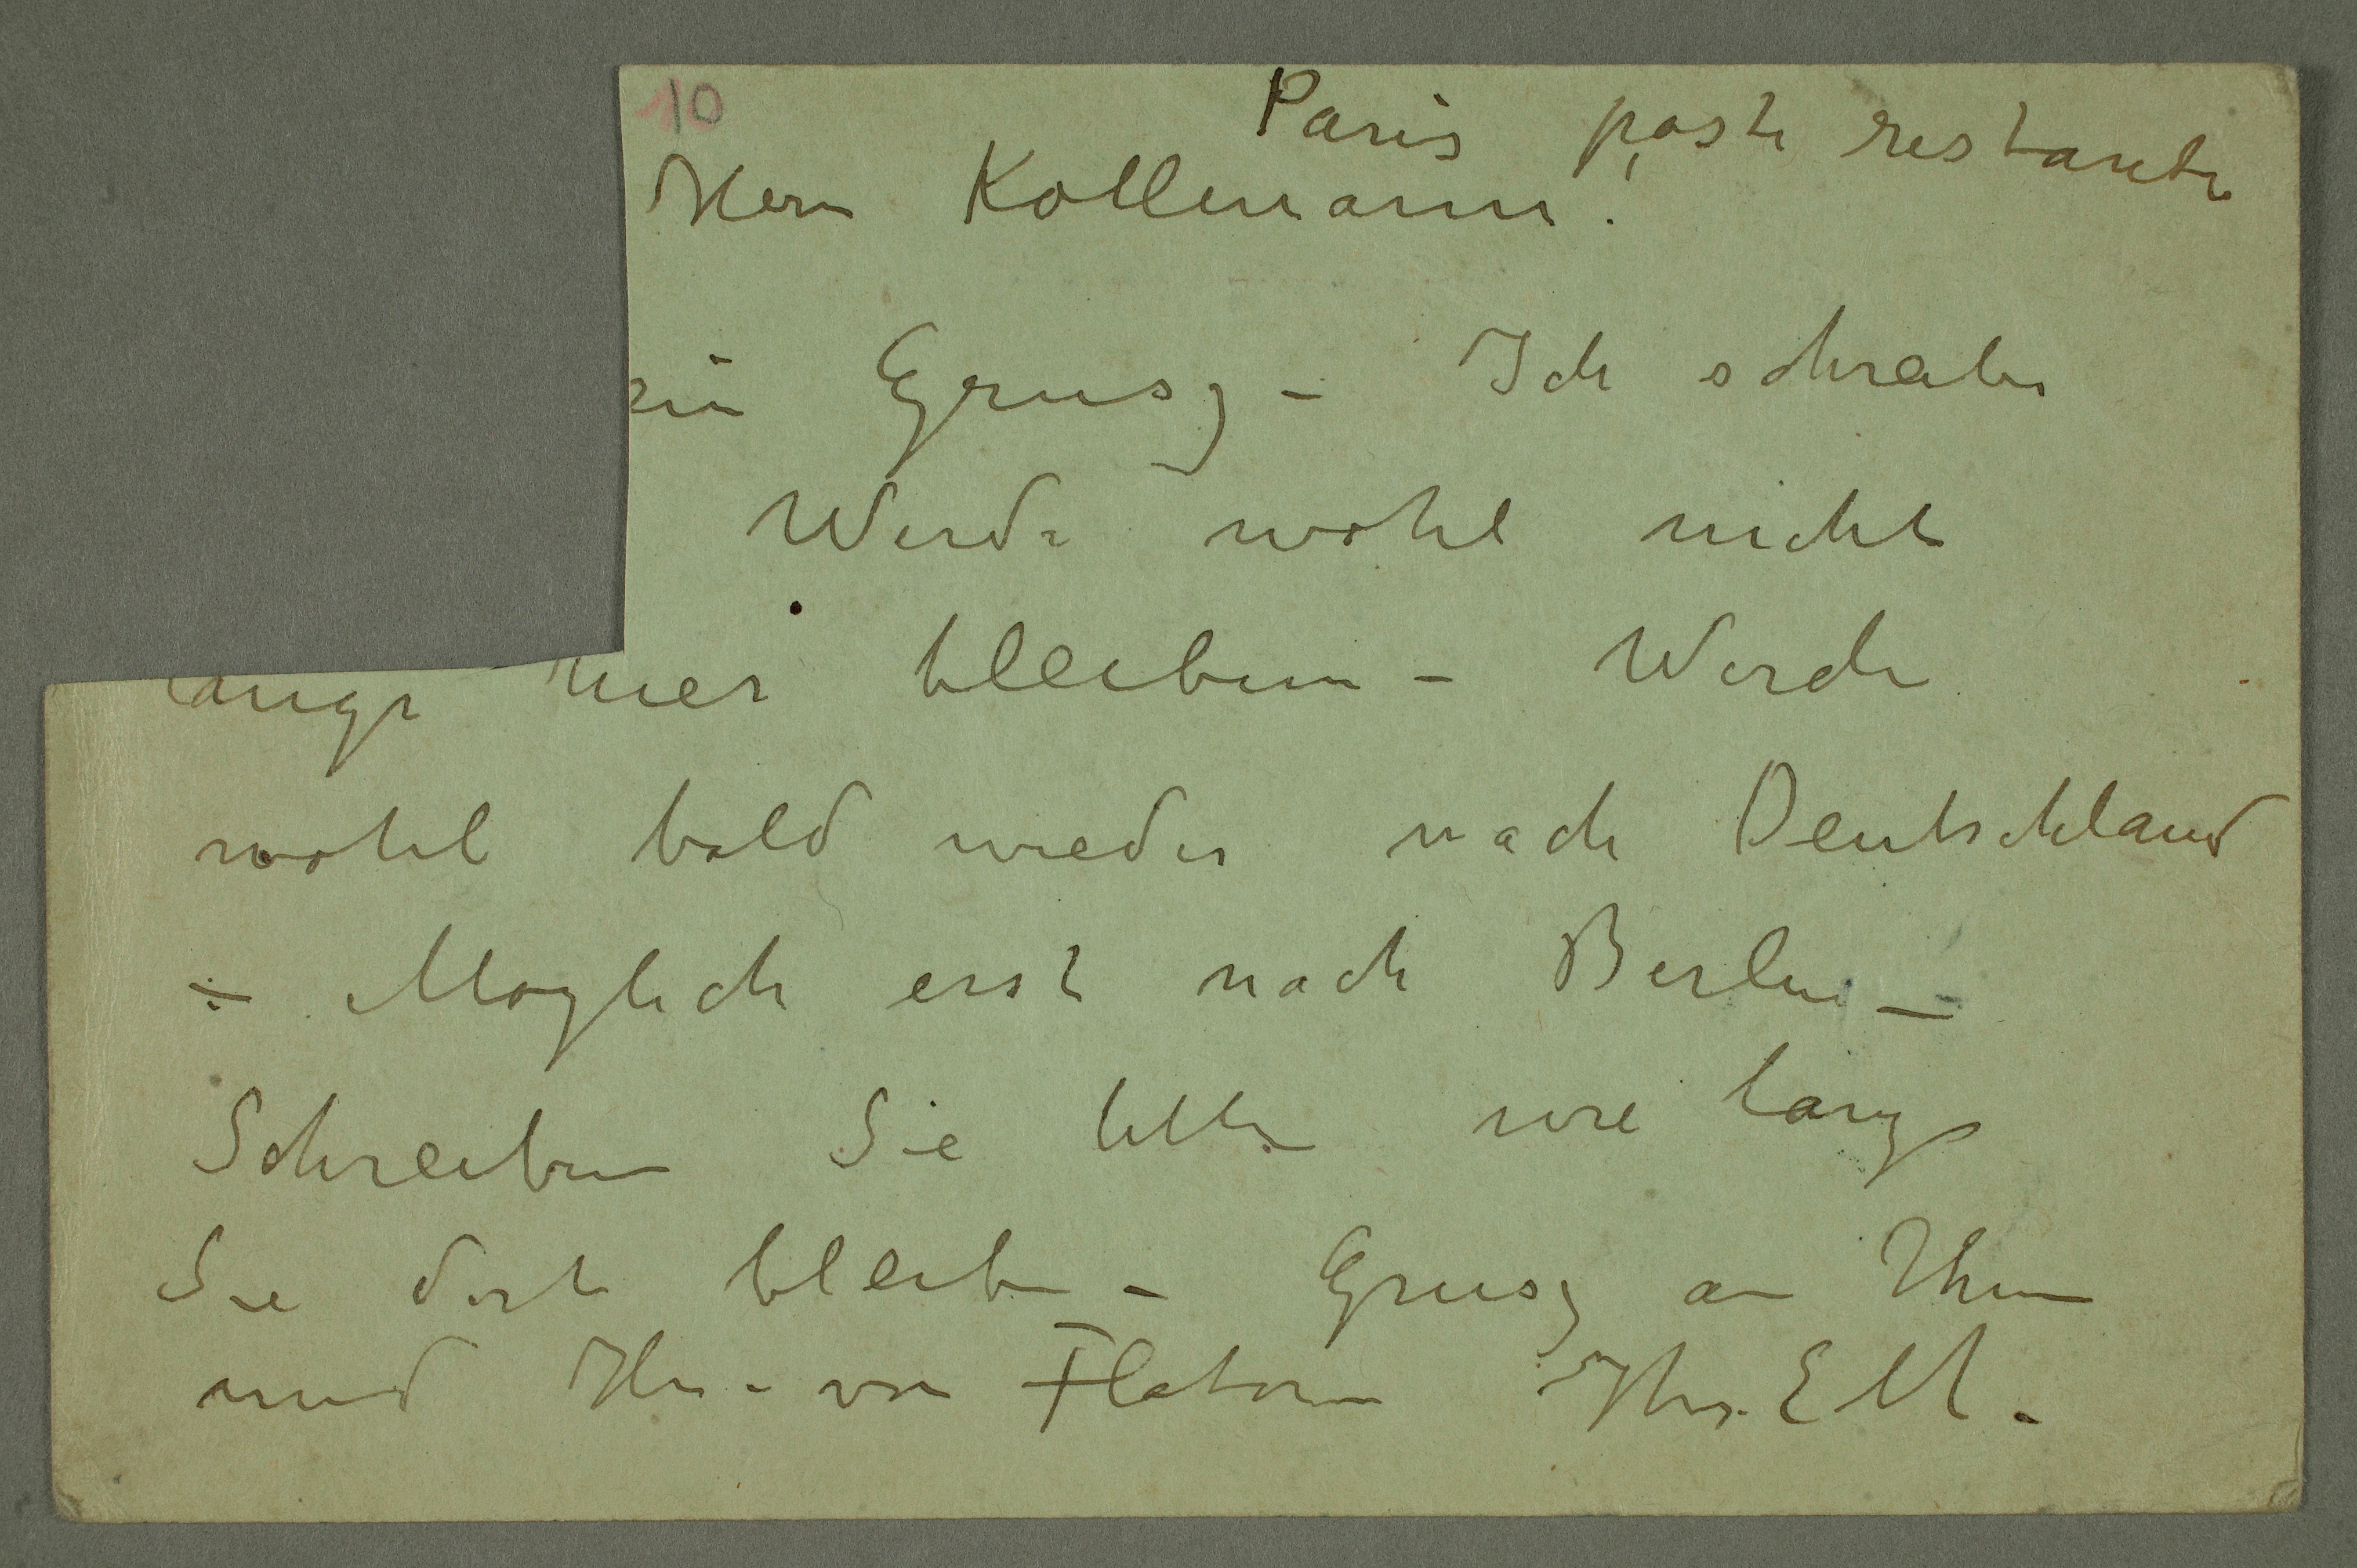 10
Paris poste restante
Herrn Kollmann!
ein Grusz – Ich schreibe
Werde wohl nicht
lange hier bleiben – Werde
wohl bald wieder nach Deutschland
– Moglich erst nach Berlin –
Schreiben Sie bitte wie lange
Sie dort bleiben – Grusz an Ihnen
und Hrn. von Flotow Ihr. EM.